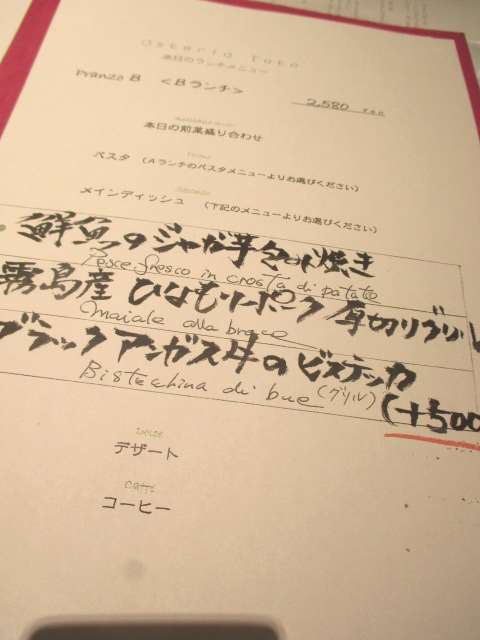 Osteria Toto
本日のランチメニュー
Pranzo B <Bランチ>
2,580 yen
本日の前菜盛り合わせ
パスタ (Aランチのパスタメニューよりお選びください)
メインディッシュ (下記のメニューよりお選びください)
鮮魚のジャガ芋包み焼き
Pesce fresco in crosta di patate
霧島産 ひなもりポーク 厚切りグリル
Maiale alla brace
ブラックアンガス牛のビステッカ
Bistecchina di bue (グリル) (+500
Dolce
デザート
Caffé
コーヒー